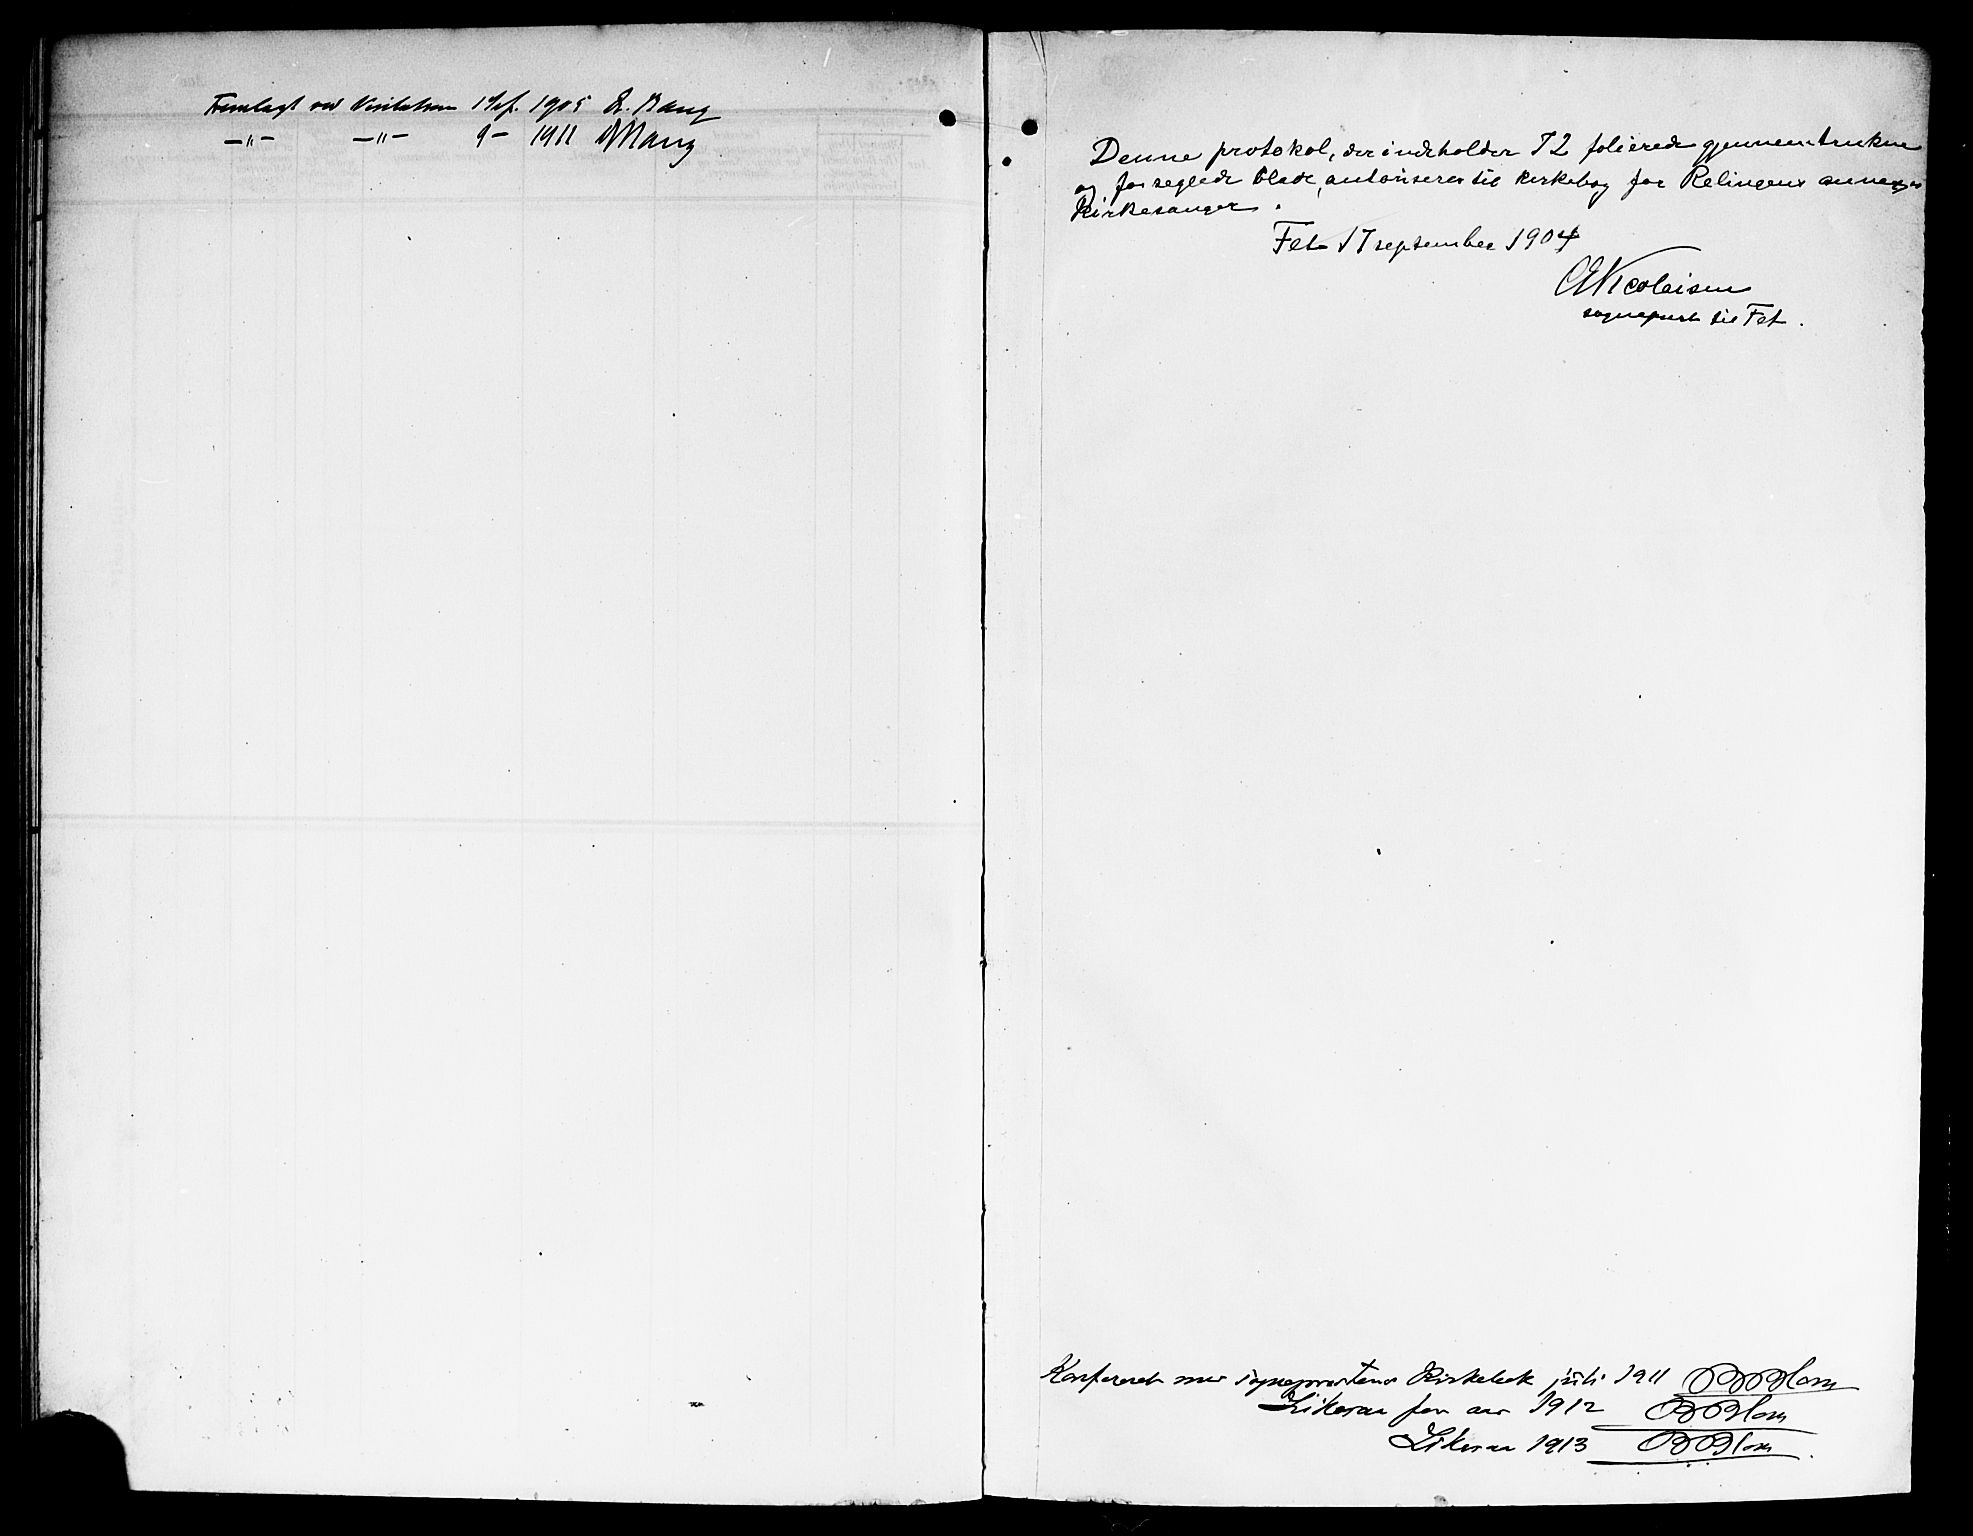 Fremlagt ved Visitatsen 1905 A. Bang
—"— —"— 9— 1911 Bang
Denne protokol, der indeholder 72 folierede gjennemtrukne
og forseglede blade, autoriseres til kirkebog for Relingens annexes
Kirkesanger.
Fet 17 september 1904
Nicolaisen
sogneprest til Fet.
Konfereret med sogneprestens Kirkebok juli 1911 B Blom
Likesaa for aar 1912 B Blom
Likesaa 1913 B Blom